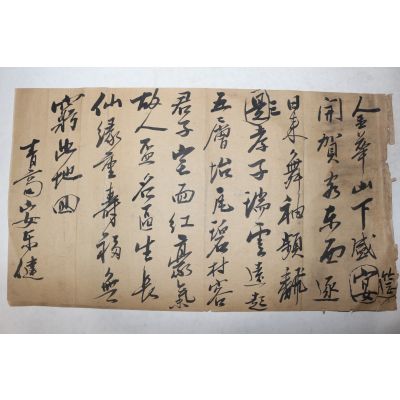 金華山下盛宴筵
開賀客東西逐
日來舞袖頻飜
三孝子瑞雲遠起
五層坮尾碧村容
君子宅面紅豪氣
故人盃名區生長
仙緣重壽福無
窮此地回
青安東健